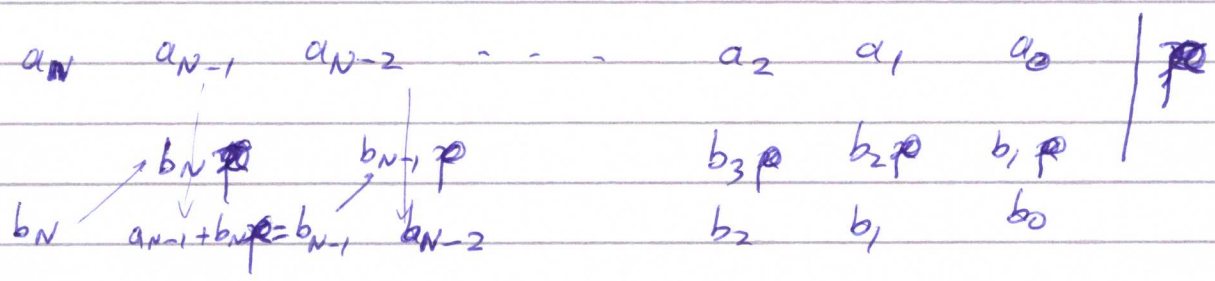 a_N a_{N-1} a_{N-2} - - - a_2 a_1 a_0 | p
b_N p b_{N-1} p b_3 p b_2 p b_1 p
b_N a_{N-1} + b_N p = b_{N-1} b_{N-2} b_2 b_1 b_0